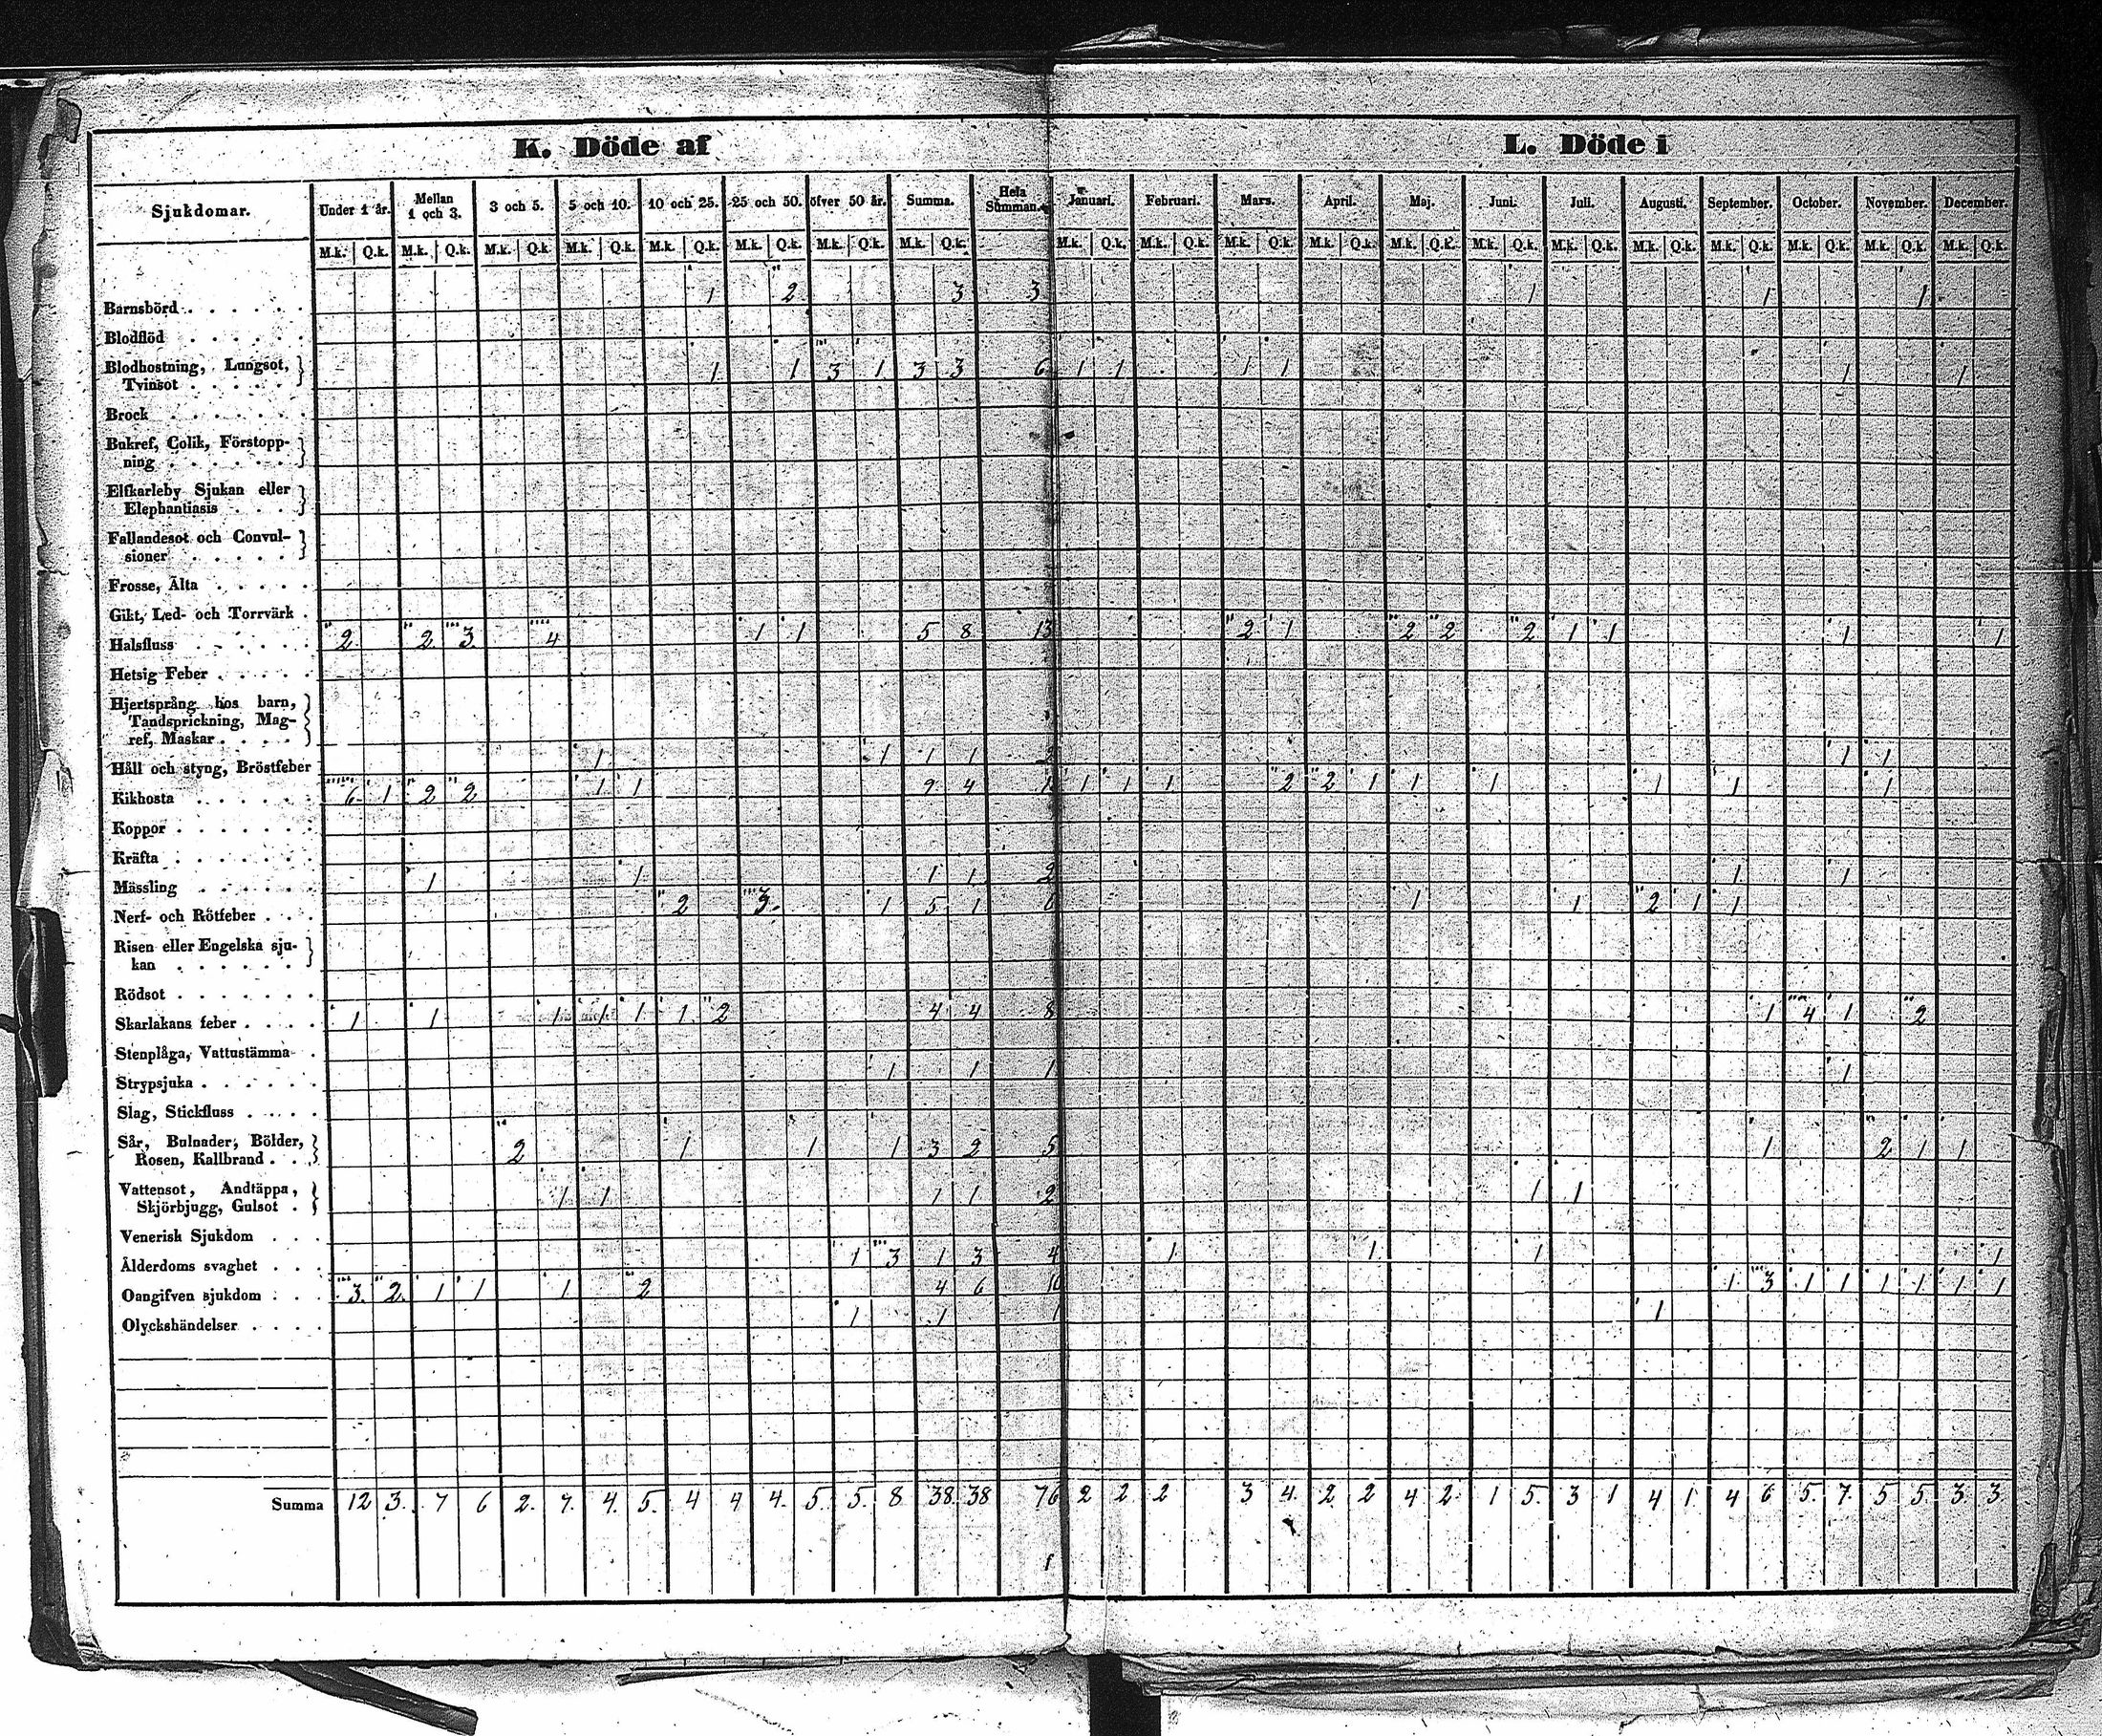 K. Döde af L. Döde i
Sjukdomar. Under 1 år. Mellan 1 och 3. 3 och 5. 5 och 10. 10 och 25. 25 och 50. öfver 50 år. Summa. Hela Summan. Januari. Februari. Mars. April. Maj. Juni. Juli. Augusti. September. October. November. December.
M.k. Q.k. M.k. Q.k. M.k. Q.k. M.k. Q.k. M.k. Q.k. M.k. Q.k. M.k. Q.k. M.k. Q.k. M.k. Q.k. M.k. Q.k. M.k. Q.k. M.k. Q.k. M.k. Q.k. M.k. Q.k. M.k. Q.k. M.k. Q.k. M.k. Q.k. M.k. Q.k. M.k. Q.k. M.k. Q.k.
Barnsbörd . . . . . . 1 2 3 3 1 1 1
Blodflöd . . . . . .
Blodhostning, Lungsot,
Tvinsot . . . . . 1 1 3 1 3 3 6 1 1 1 1 1 1
Brock . . . . . . .
Bukref, Colik, Förstopp-
ning . . . . . . .
Elfkarleby Sjukan eller
Elephantiasis . . . .
Fallandesot och Convul-
sioner . . . . .
Frosse, Älta . . . . .
Gikt, Led- och Torrvärk .
Halsfluss . . . . . . 2 2 3 4 1 1 5 8 13 2 1 2 2 2 1 1 1 1
Hetsig Feber . . . . .
Hjertsprång hos barn,
Tandsprickning, Mag-
ref, Maskar . . . .
Håll och styng, Bröstfeber 1 1 1 1 2 1 1
Kikhosta . . . . . . 6 1 2 2 1 1 9 4 1 1 1 2 2 1 1 1 1 1 1
Koppor . . . . . . .
Kräfta . . . . . . .
Mässling . . . . . . 1 1 1 1 2 1 1
Nerf- och Rötfeber . . . 2 3 1 5 1 6 1 1 2 1 1
Risen eller Engelska sju-
kan . . . . . .
Rödsot . . . . . . .
Skarlakans feber . . . . 1 1 1 1 1 1 2 4 4 8 1 4 1 2
Stenplåga, Vattustämma .
Strypsjuka . . . . . . 1 1 1 1
Slag, Stickfluss . . . .
Sår, Bulnader, Bölder,
Rosen, Kallbrand . . 2 1 1 1 3 2 5 1 2 1 1
Vattensot, Andtäppa,
Skjörbjugg, Gulsot . 1 1 1 1 2 1 1
Venerisk Sjukdom . . .
Ålderdoms svaghet . . . 1 3 1 3 4 1 1 1 1
Oangifven sjukdom . . . 3 2 1 1 1 2 4 6 10 1 3 1 1 1 1 1 1
Olyckshändelser . . . . 1 1 1 1
Summa 12 3 7 6 2 7 4 5 4 4 4 5 5 8 38 38 76 2 2 2 3 4 2 2 4 2 1 5 3 1 4 1 4 6 5 7 5 5 3 3